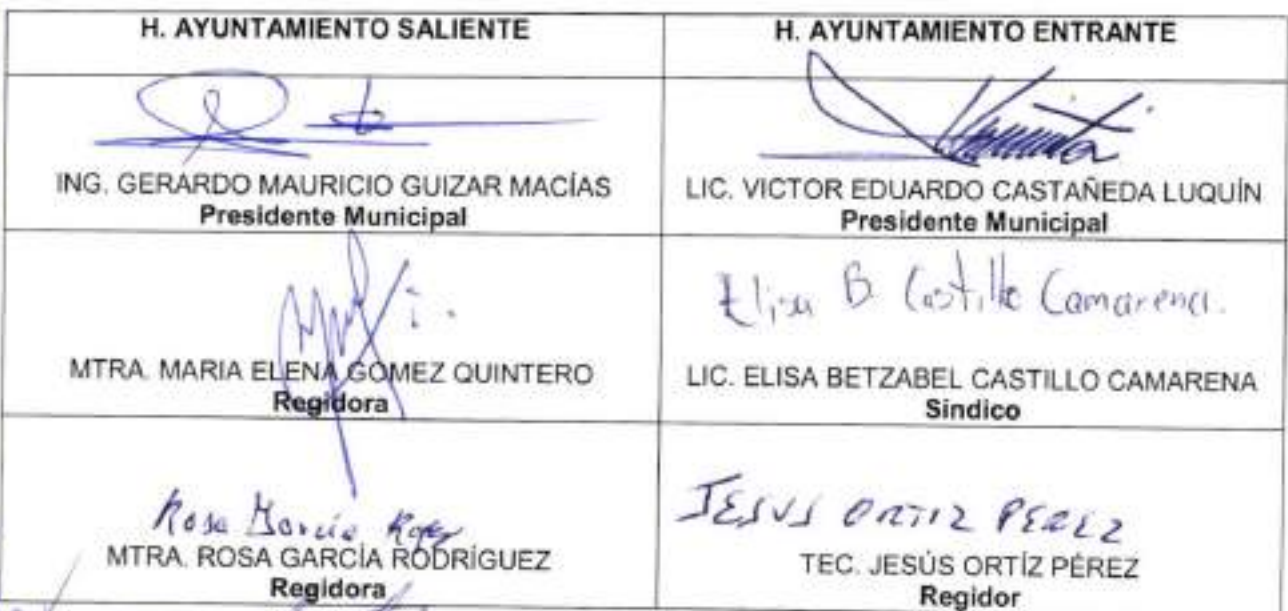 H. AYUNTAMIENTO SALIENTE
H. AYUNTAMIENTO ENTRANTE
ING. GERARDO MAURICIO GUIZAR MACÍAS
Presidente Municipal
LIC. VICTOR EDUARDO CASTAÑEDA LUQUÍN
Presidente Municipal
MTRA. MARIA ELENA GOMEZ QUINTERO
Regidora
Elisa B. Castillo Camarena.
LIC. ELISA BETZABEL CASTILLO CAMARENA
Sindico
Rosa García
MTRA. ROSA GARCÍA RODRÍGUEZ
Regidora
JESUS ORTIZ PEREZ
TEC. JESÚS ORTÍZ PÉREZ
Regidor